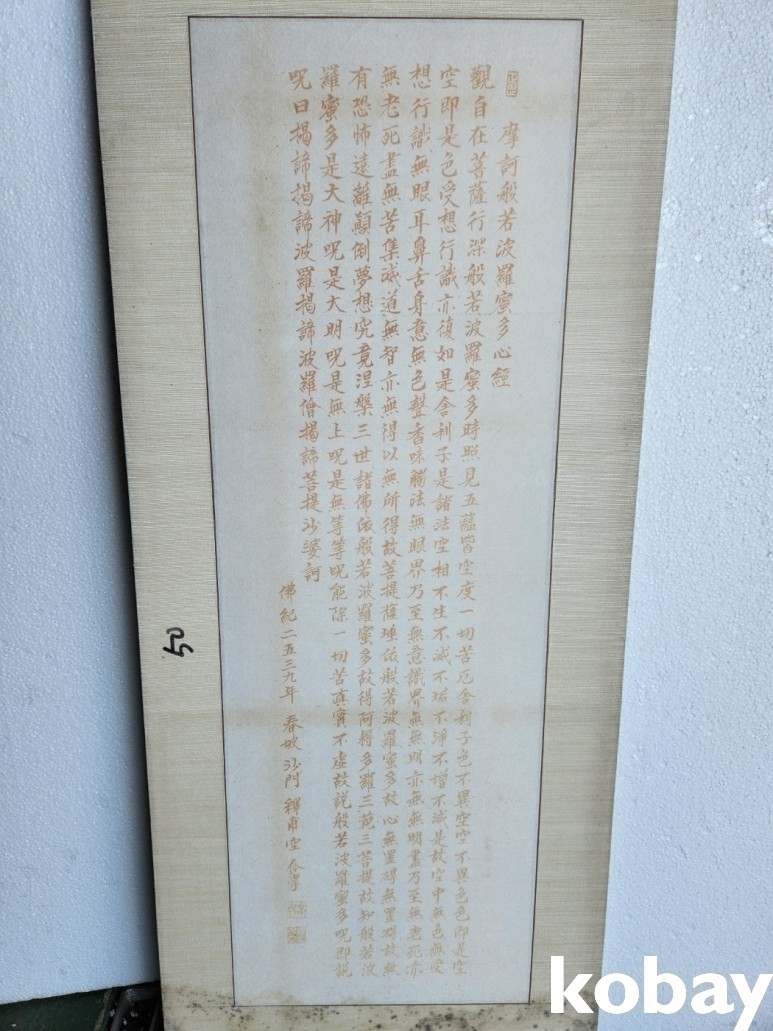 摩訶般若波羅蜜多心經
觀自在菩薩行深般若波羅蜜多時照見五蘊皆空度一切苦厄舍利子色不異空空不異色色即是空
空即是色受想行識亦復如是舍利子是諸法空相不生不滅不垢不淨不增不減是故空中無色無受
想行識無眼耳鼻舌身意無色聲香味觸法無眼界乃至無意識界無無明亦無無明盡乃至無老死亦
無老死盡無苦集滅道無智亦無得以無所得故菩提薩埵依般若波羅蜜多故心無罣碍無罣碍故無
有恐怖遠離顚倒夢想究竟涅槃三世諸佛依般若波羅蜜多故得阿耨多羅三藐三菩提故知般若波
羅蜜多是大神呪是大明呪是無上呪是無等等呪能除一切苦真實不虛故說般若波羅蜜多呪即說
呪曰揭諦揭諦波羅揭諦波羅僧揭諦菩提沙婆訶
佛紀二五三九年 春 沙門 釋 空
50
kobay